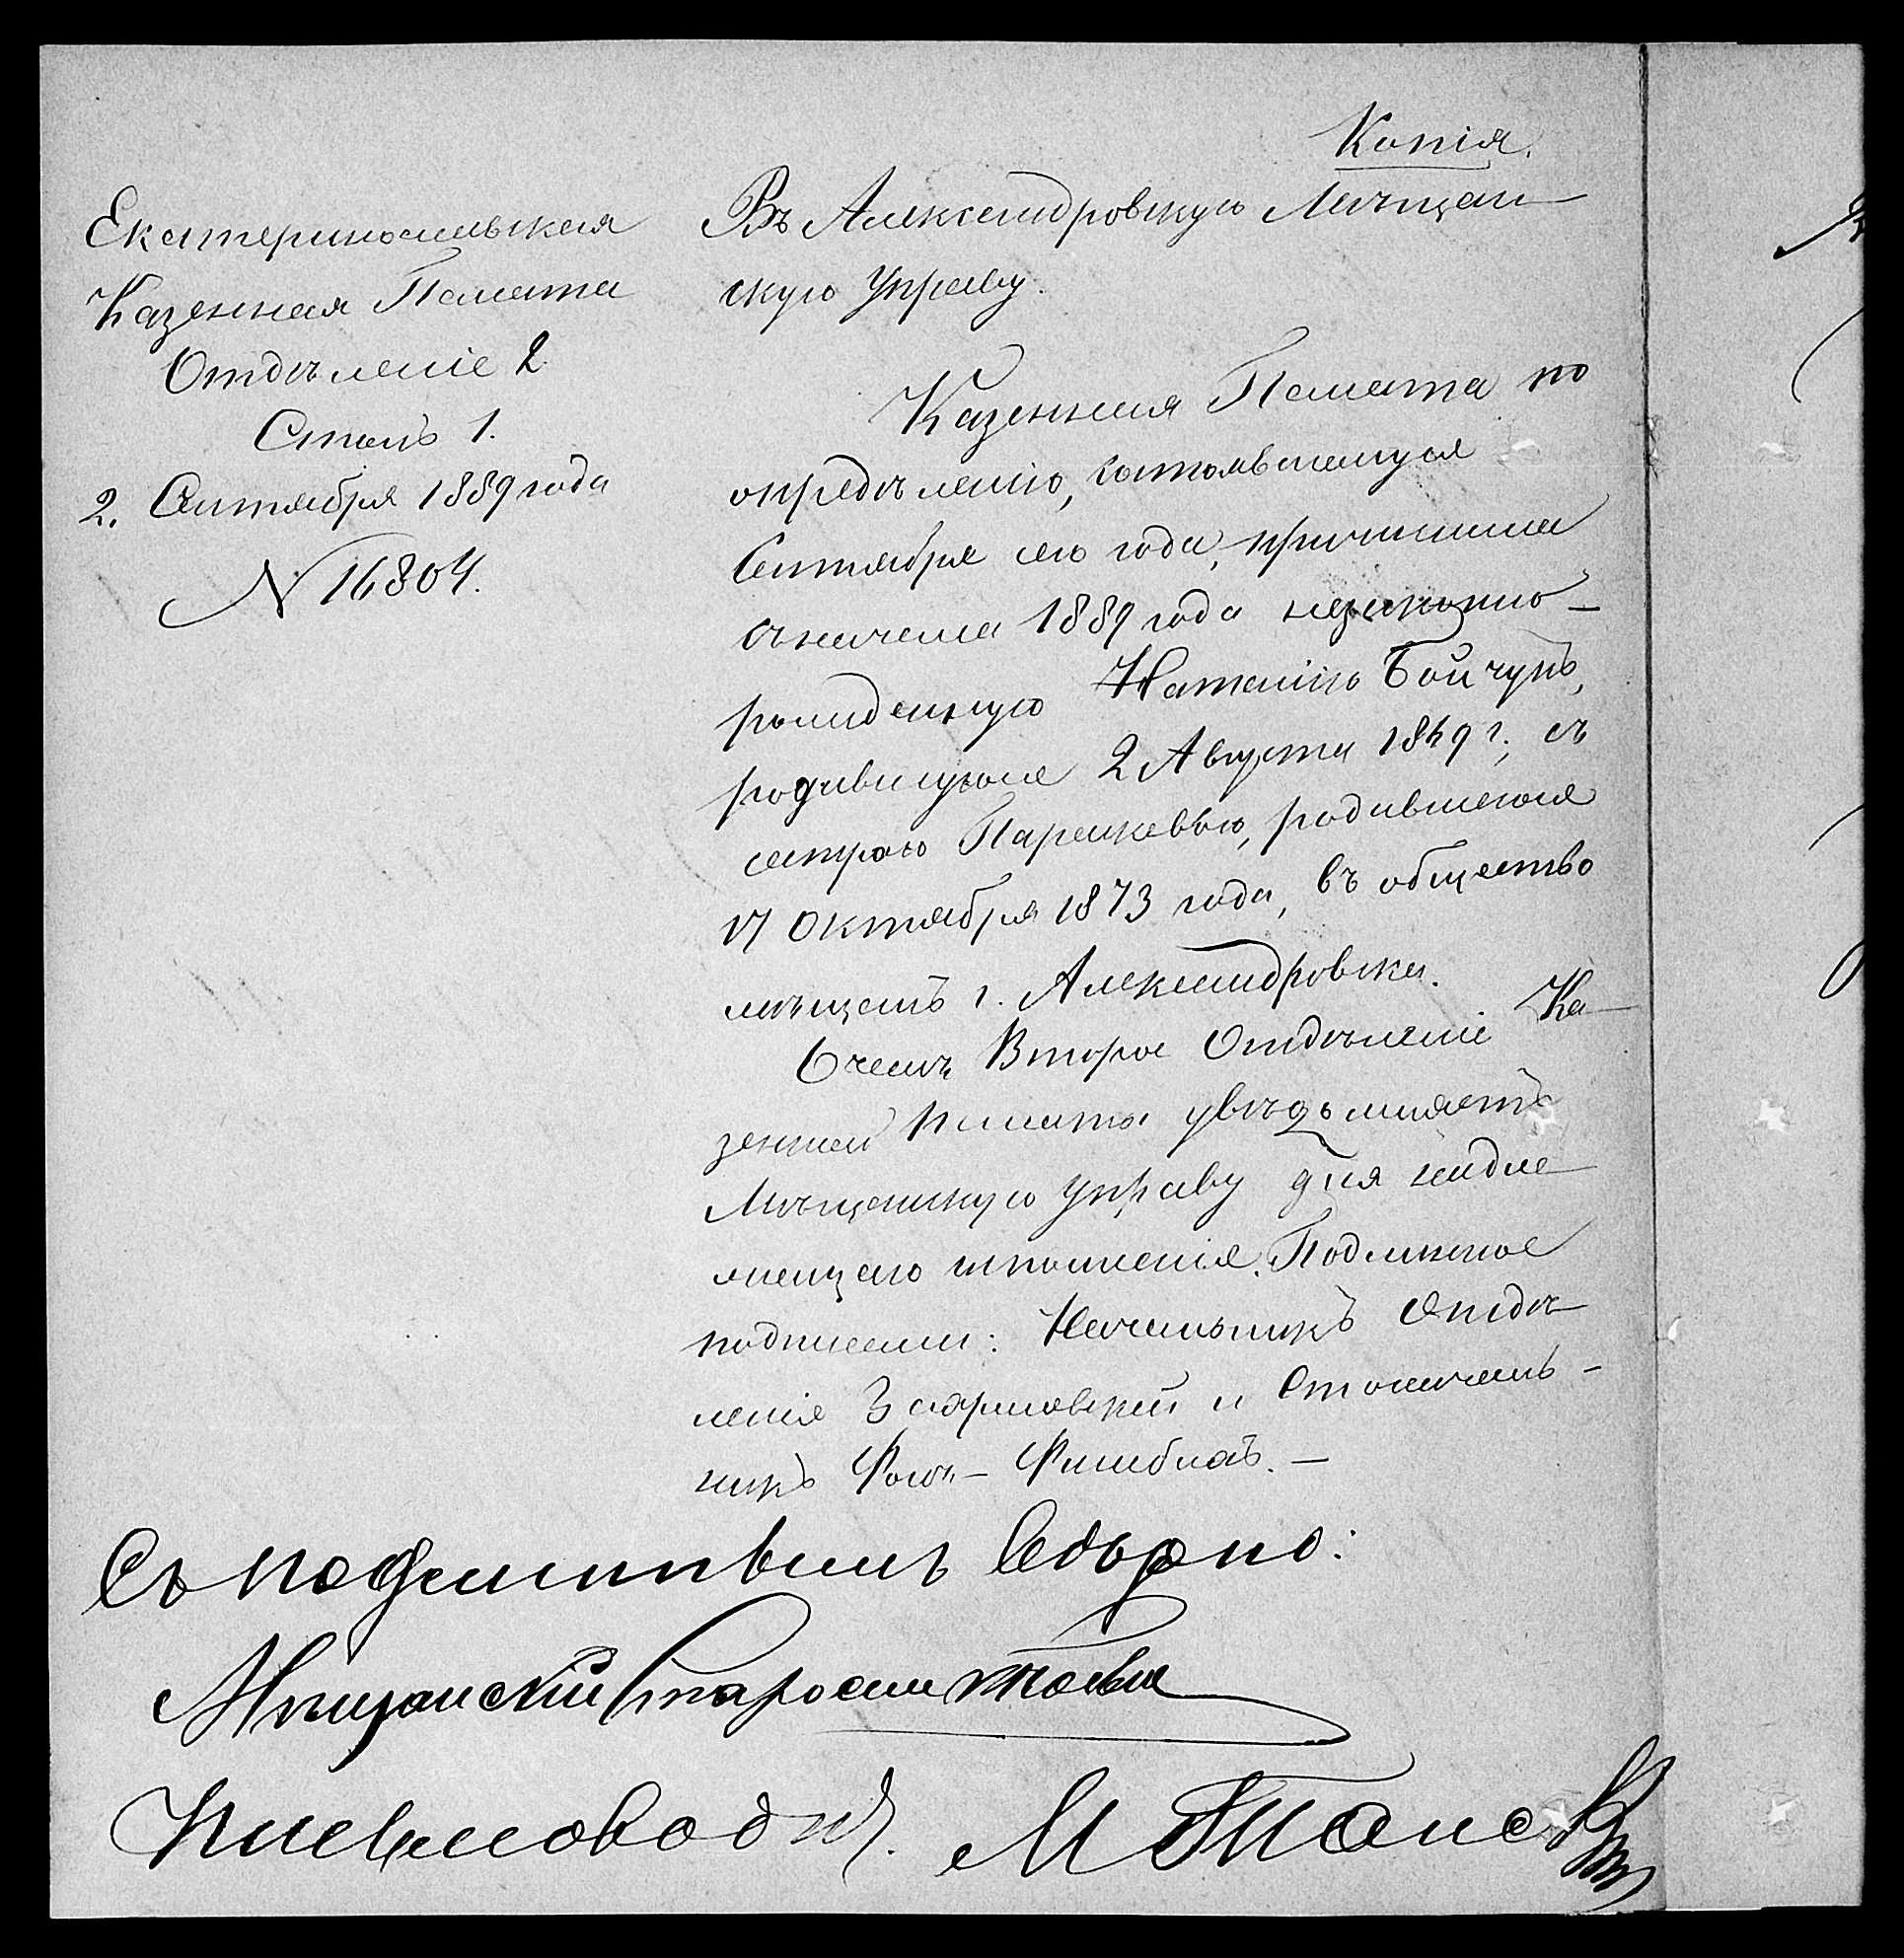 Копія.
Екатеринославская
Казенная Палата
Отдѣленіе 2
Столъ 1.
2. Сентября 1889 года
N 16804.
Въ Александровскую Мѣщан-
скую Управу.
Казенная Палата по
опредѣленію, состоявшемуся
Сентября сего года, причислила
съ начала 1889 года незаконно-
рожденную Наталію Бойчукъ,
родившуюся 2 Августа 1869 г., съ
сестрою Парасковьею, родившеюся
17 Октября 1873 года, въ общество
мѣщанъ г. Александровска.
О чемъ Второе Отдѣленіе Ка-
зенной Палаты увѣдомляетъ
Мѣщанскую Управу для надле-
жащего исполненія. Подлинное
подписали: Начальникъ Отдѣ-
ленія и Столоначаль-
никъ Фонъ-
Съ подлиннымъ вѣрно:
Мѣщанскій Староста
Письмоводит. М